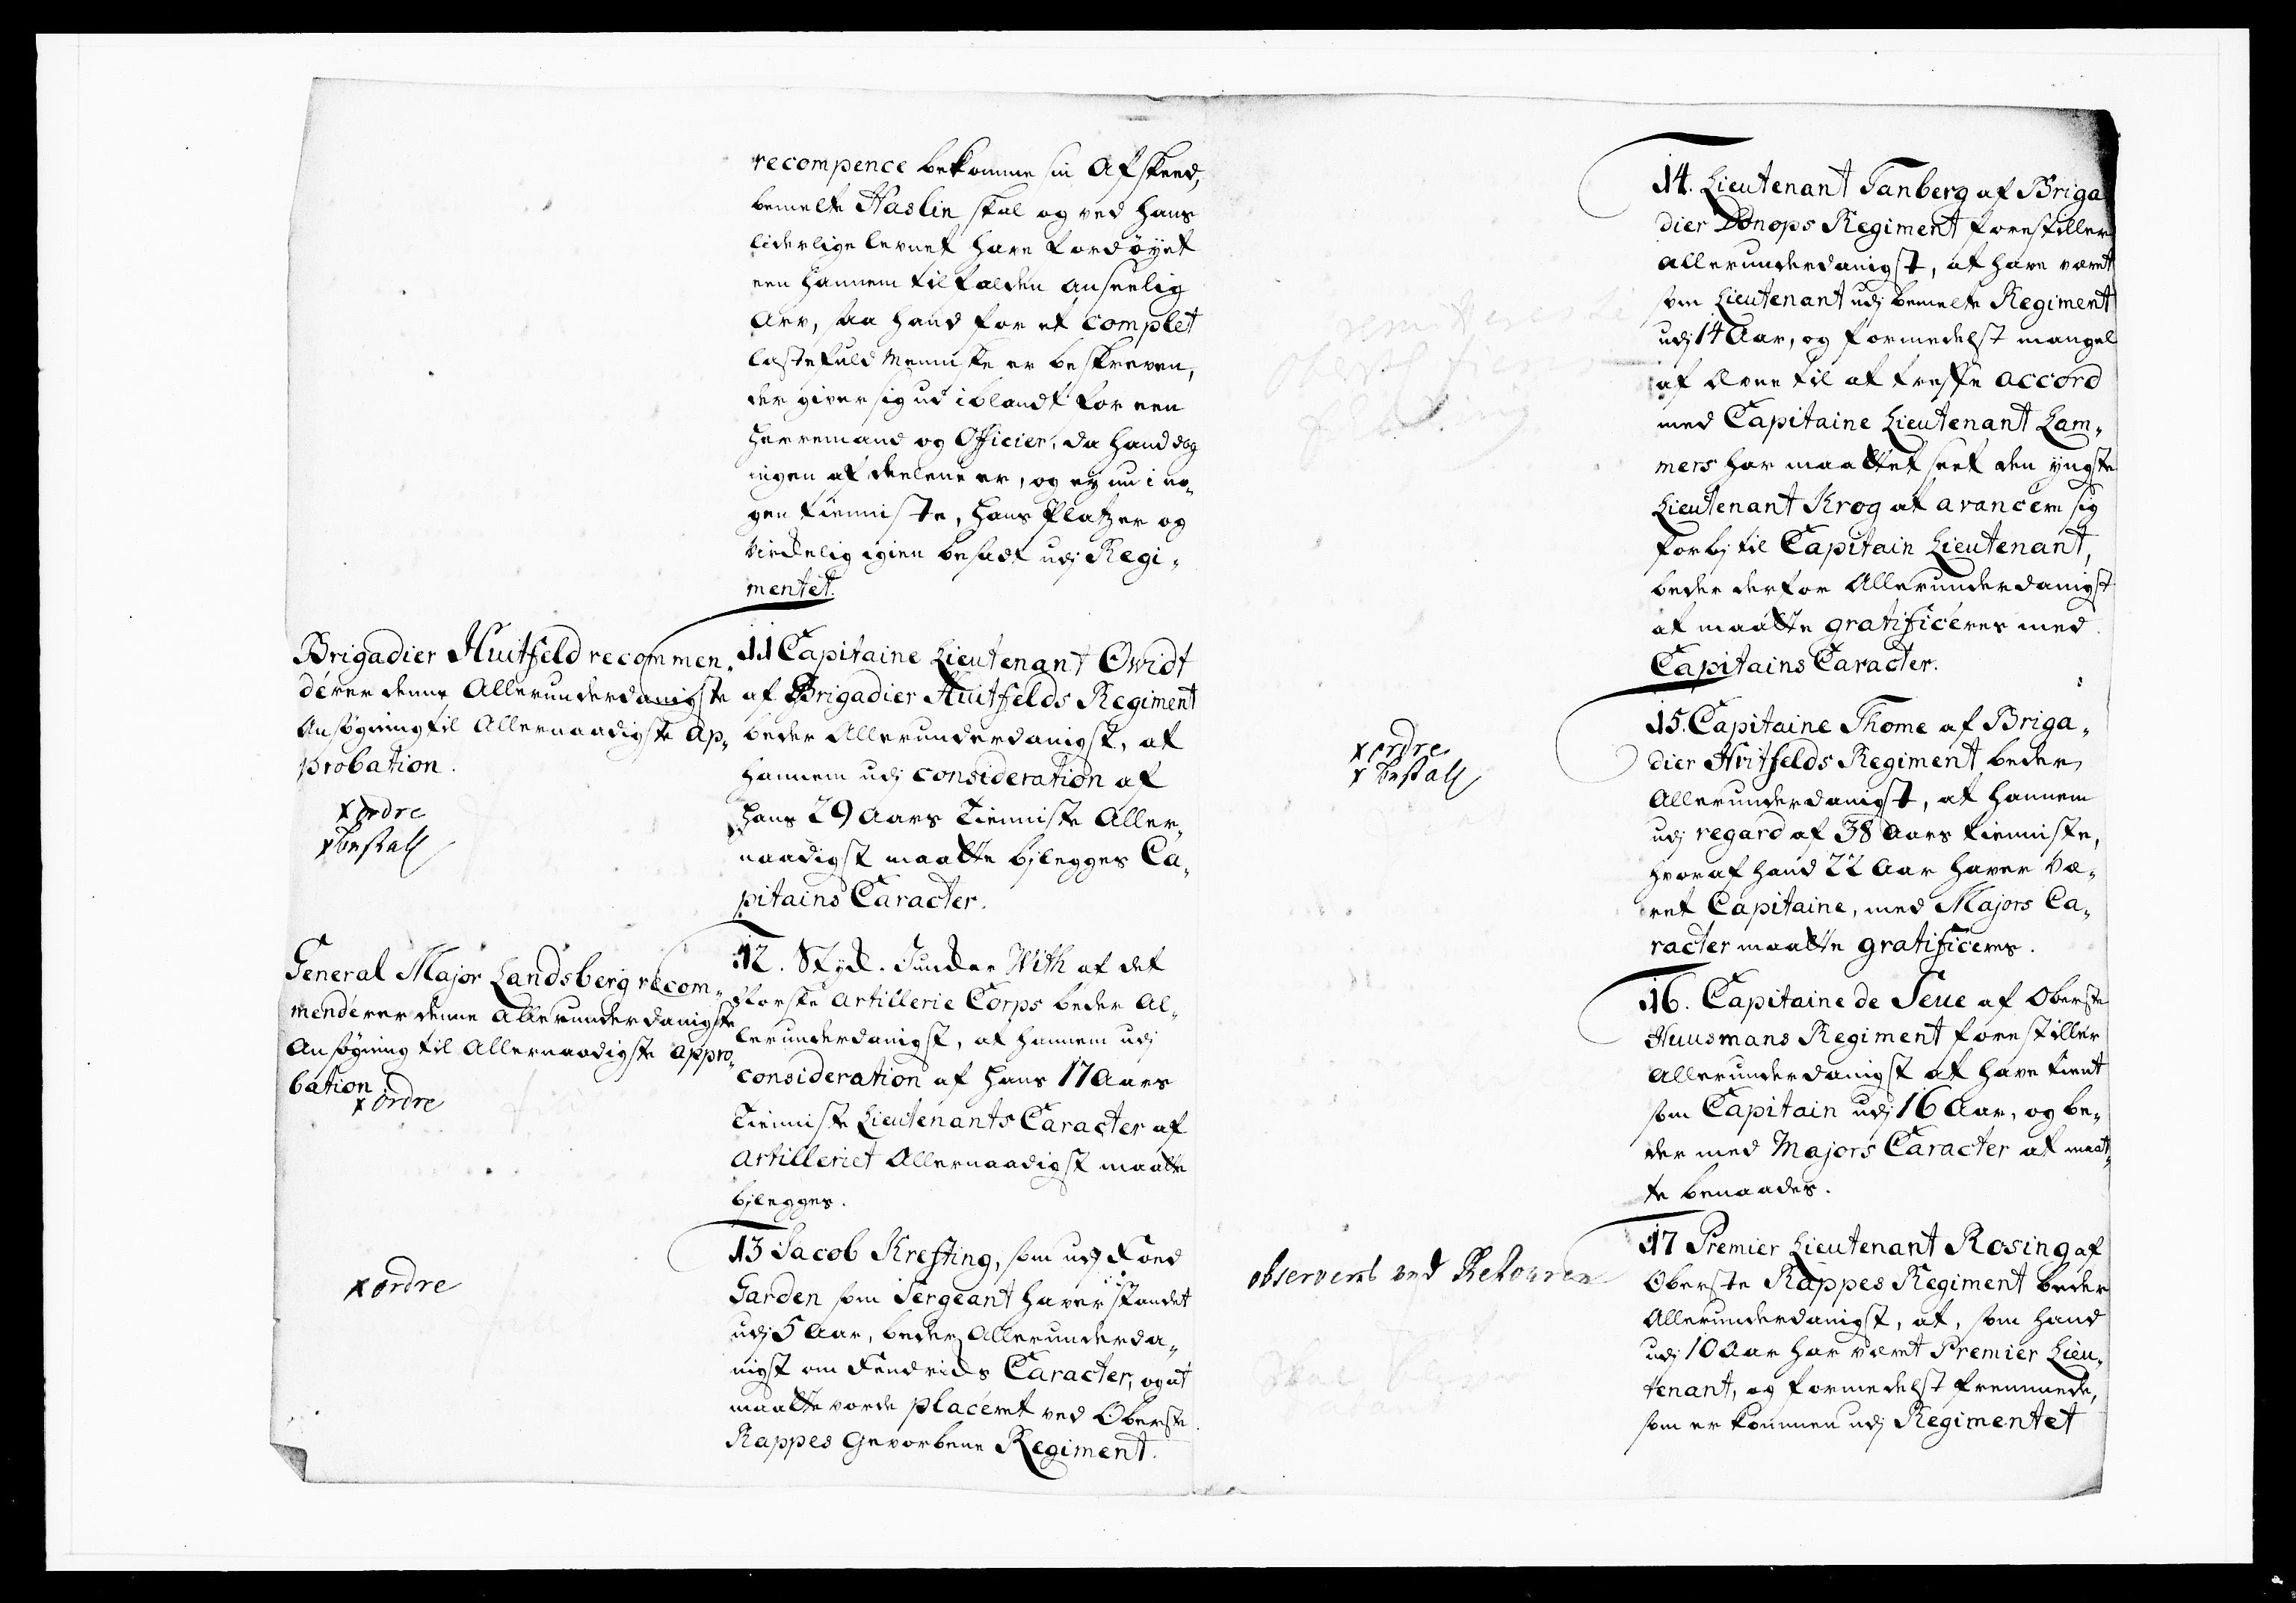 recompence bekomme sin Afskeed,
bemelte Haslin skal og ved hans
liderlige levnet have fordøyet
een hannem tilfalden anseelig
Arv, saa hand for et complet
lastefuld Menniske er beskreven,
der giver sig ud iblandt for een
Herremand og Officier, da hand dog
ingen af deelene er, og ey nu i no-
gen tienniste, hans Platz er og
virkelig igien besadt udj Regi-
mentet.
Brigadier Huitfeld recommen-
dérer denne Allerunderdanigste
Ansøgning til Allernaadigste ap-
probation.
x ordre
x bestall
11 Capitaine Lieutenant Owidt
af Brigadier Huitfelds Regiment
beder Allerunderdanigst, at
hannem udj consideration af
hans 29 Aars Tienniste Aller-
naadigst maatte bjlegges Ca-
pitains Caracter.
General Major Landsberg recom-
mendérer denne allerunderdanigste
Ansøgning til Allernaadigste appro-
bation
x ordre
12. Styck-Juncker With af det
Norske Artillerie Corps beder Al-
lerunderdanigst, at hannem udj
consideration af hans 17 Aars
Tienniste Lieutenants Caracter af
Artilleriet Allernaadigst maatte
bjlegges.
x ordre
13 Jacob Kresting, som udj Foed
Garden som Sergeant haver standet
udj 5 Aar, beder Allerunderda-
nigst om Fendrichs Caracter, og at
maatte vorde placéret ved Oberste
Rappes Gevorbene Regiment.
14. Lieutenant Tanberg af Briga
dier Donops Regiment forestiller
Allerunderdanigst, at have været
som Lieutenant udj bemelte Regiment
udj 14 Aar, og formedelst mangel
afÆvne til at treffe accord
med Capitaine Lieutenant Lam-
mers har maattet seet den yngste
Lieutenant Krog at avancere sig
forbj til Capitain Lieutenant,
beder derfor Allerunderdanigst
at maatte gratificéres med
Capitains Caracter.
x ordre
x bestall
15. Capitaine Thome af Briga-
dier Huitfelds Regiment beder
Allerunderdanigst, at hannem
udj regard af 38 Aars tienniste,
hvoraf hand 22 Aar haver væ-
ret Capitaine, med Majors Ca-
racter maatte gratificeres.
16. Capitaine de Seue af Oberste
Huusmans Regiment forestiller
Allerunderdanigst at have tient
som Capitain udj 16 Aar, og be-
der med Majors Caracter at maat-
te benaades.
observeres ved Retouren
17 Premier Lieutenant Rosing af
Oberste Rappes Regiment beder
Allerunderdanigst, at, som hand
udj 10 Aar har været Premier Lieu-
tenant, og formedelst fremmede,
som er kommen udj Regimentet